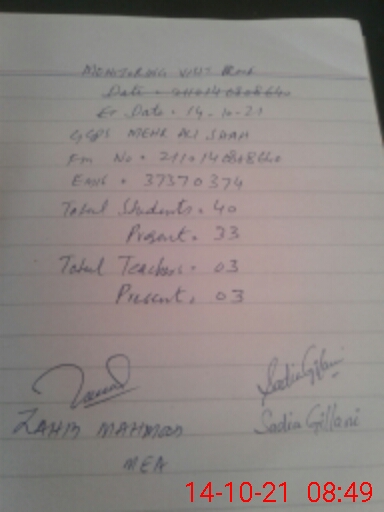 MONITORING VISIT
Date =
Date = 14-10-21
GGPS MEHR ALI SHAH
No = 
EMIS = 37370374
Total Students = 40
Present = 33
Total Teachers = 03
Present = 03
Sadia Gillani
ZAHID MAHMOOD
Sadia Gillani
MEA
14-10-21 08:49